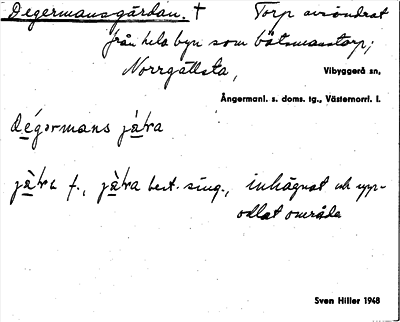 Degermansgärdan. † Torp avsöndrat
från hela byn som båtsmanstorp;
Norrgållsta, Vibyggerå sn,
Ångermanl. s. doms. tg., Västernorrl. l.
dégermans jà̱ra
jà̱ra f., jà̱ra best. sing., inhägnat och upp-
odlat område
Sven Hiller 1948